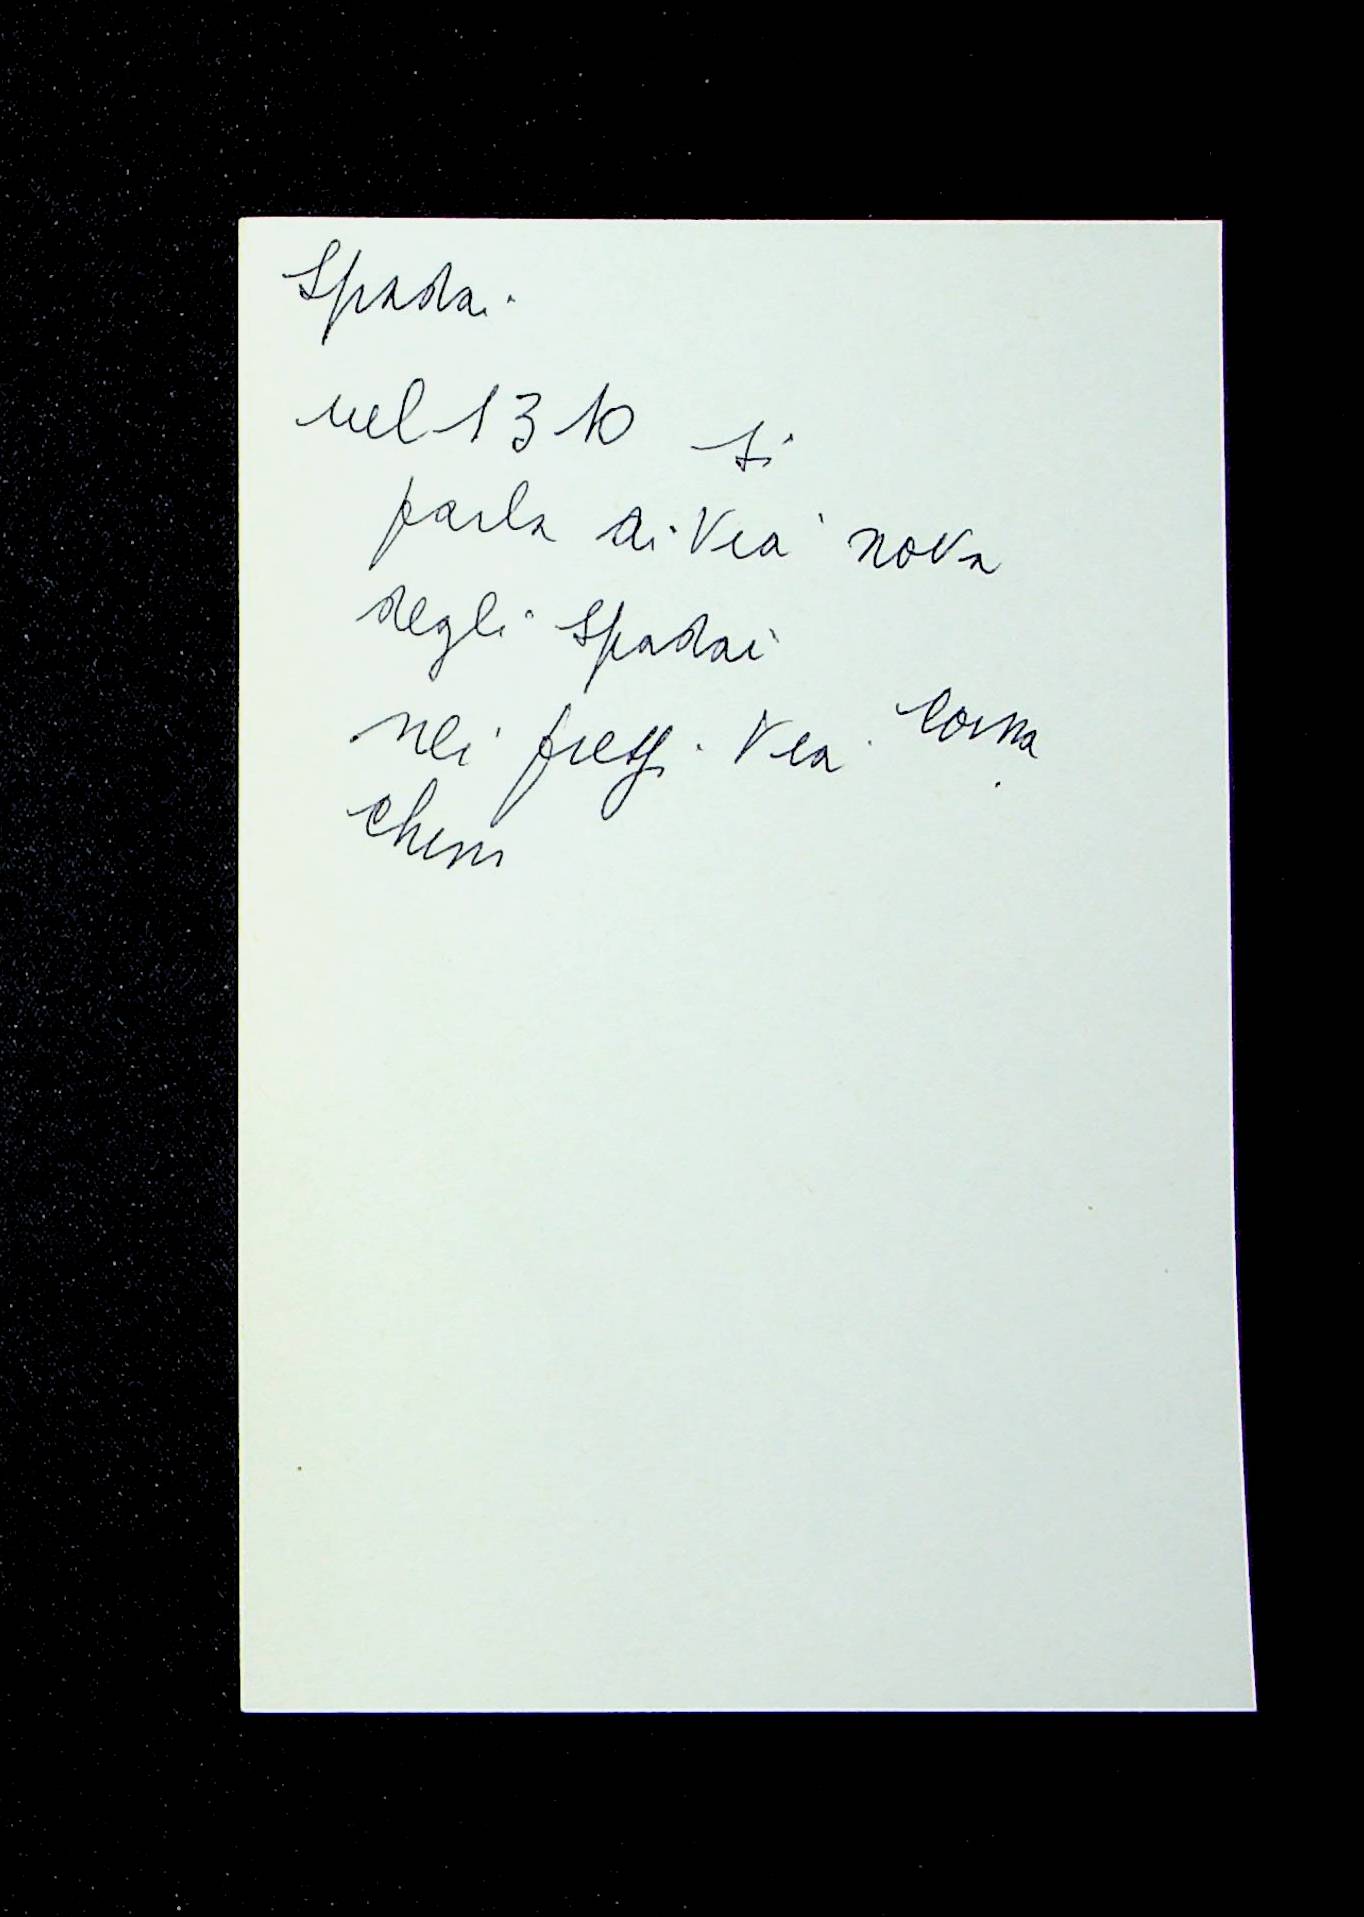 Spadai
nel 1310 si
parla di Via nova
degli Spadai
nei press. Via Corna
chini